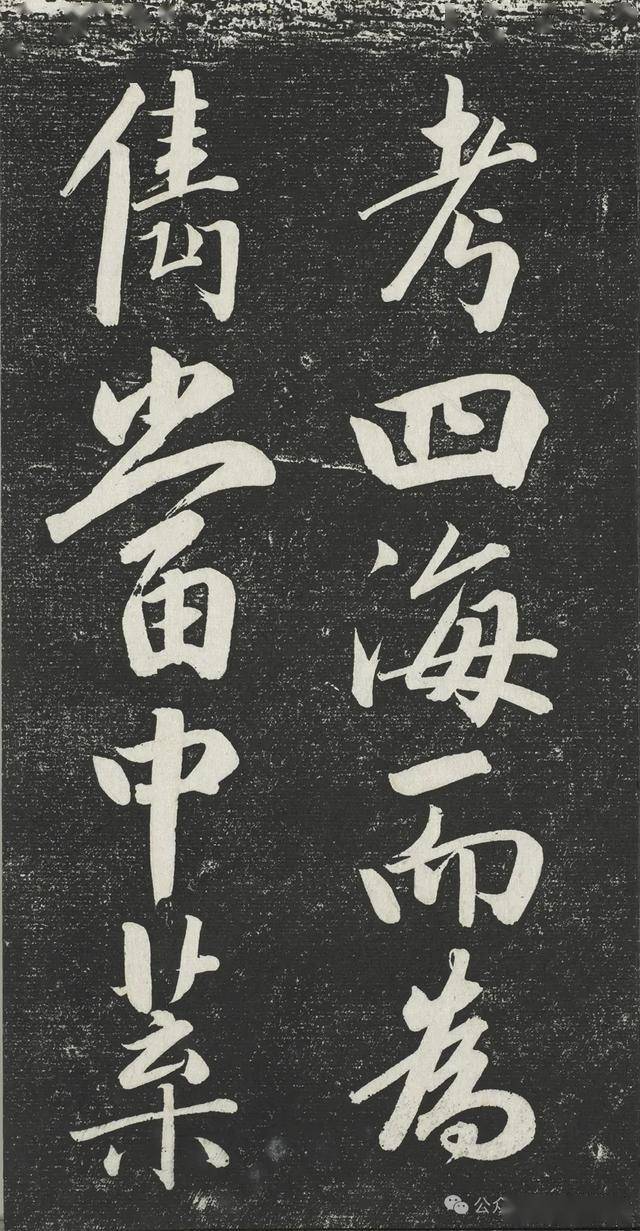 考四海而為
儁當中葉
公众